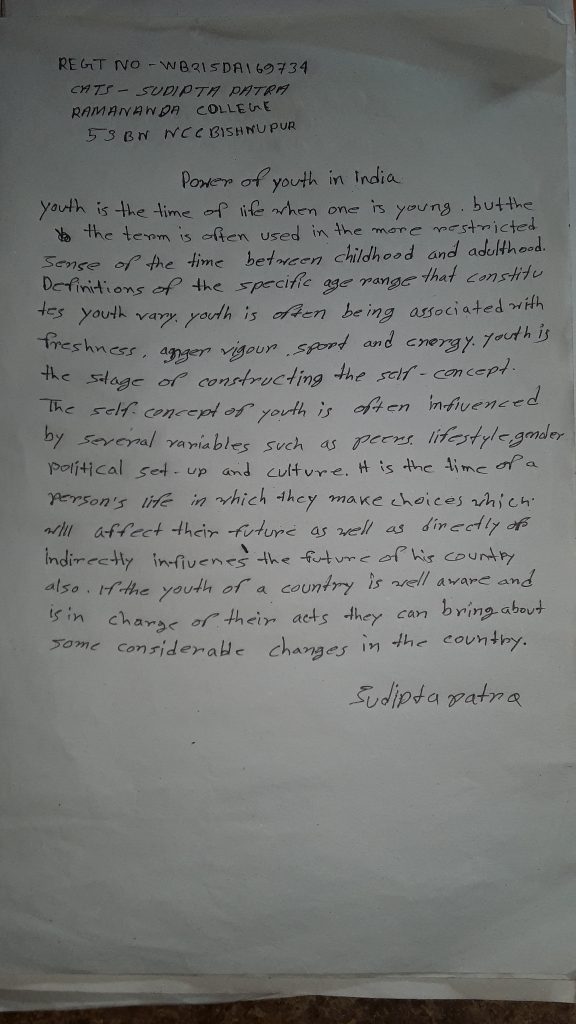 REGT NO - WB21SDA169734
CATS - SUDIPTA PATRA
RAMANANDA COLLEGE
53 BN NCC BISHNUPUR
Power of youth in India
youth is the time of life when one is young. but the
the term is often used in the more restricted
sense of the time between childhood and adulthood.
Definitions of the specific age range that constitu
tes youth vary. youth is often being associated with
freshness, anger vigour, sport and energy. youth is
the stage of constructing the self-concept.
The self-concept of youth is often influenced
by several variables such as peers, lifestyle, gender
political set-up and culture. It is the time of a
person's life in which they make choices which
will affect their future as well as directly or
indirectly influenes the future of his country
also. If the youth of a country is well aware and
is in charge of their acts they can bring about
some considerable changes in the country.
Sudipta patra